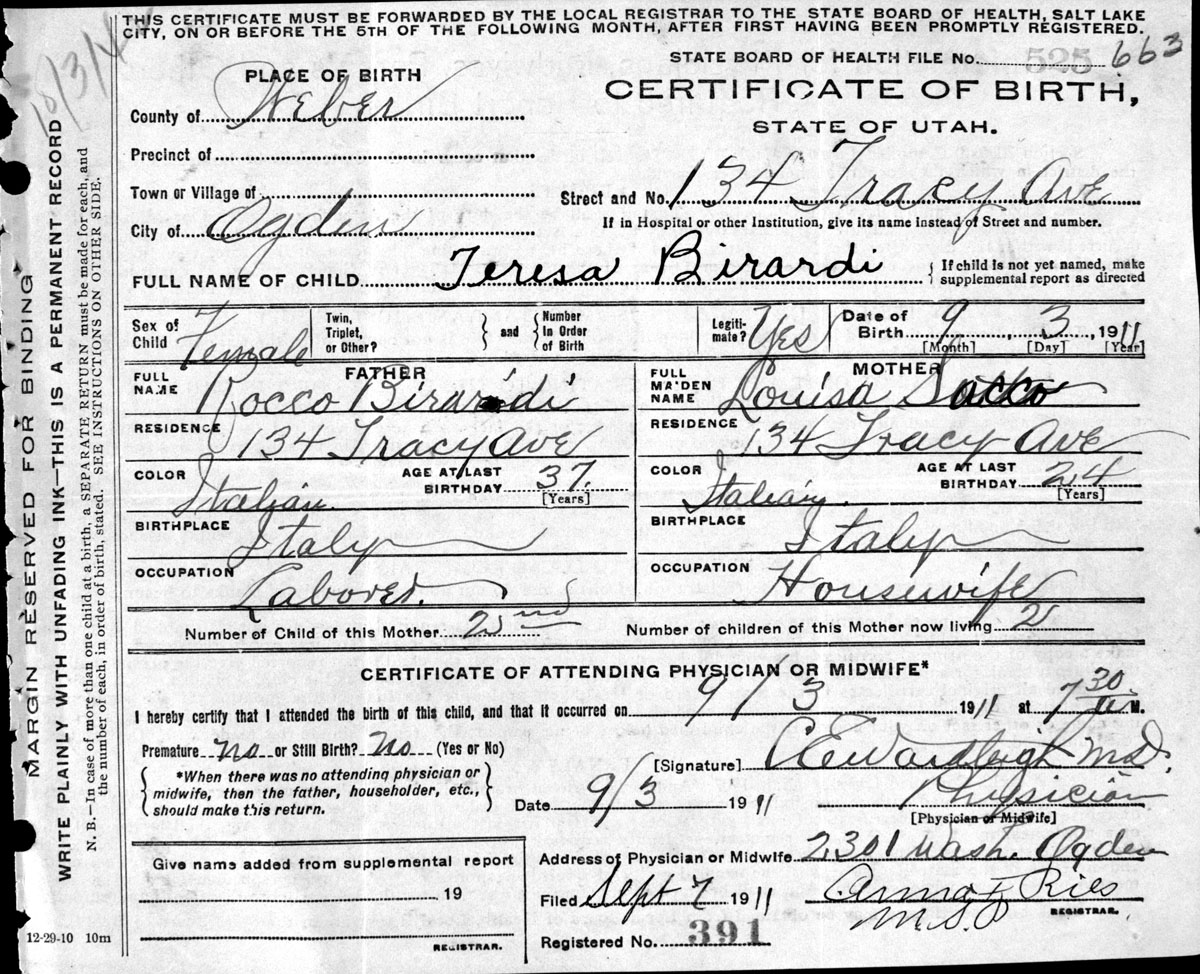 THIS CERTIFICATE MUST BE FORWARDED BY THE LOCAL REGISTRAR TO THE STATE BOARD OF HEALTH, SALT LAKE
CITY, ON OR BEFORE THE 5TH OF THE FOLLOWING MONTH, AFTER FIRST HAVING BEEN PROMPTLY REGISTERED.
STATE BOARD OF HEALTH FILE No. 525 663
PLACE OF BIRTH
CERTIFICATE OF BIRTH,
STATE OF UTAH.
County of Weber
Precinct of
Town or Village of
Street and No. 134 Tracy Ave
City of Ogden
If in Hospital or other Institution, give its name instead of Street and number.
FULL NAME OF CHILD Teresa Birardi
{ If child is not yet named, make
supplemental report as directed
Sex of Child Female
Twin, Triplet, or Other? } and { Number In Order of Birth
Legitimate? Yes
Date of Birth 9 3 1911
[Month] [Day] [Year]
FATHER
FULL NAME Rocco Birardi
RESIDENCE 134 Tracy Ave
COLOR Italian
AGE AT LAST BIRTHDAY 37 [Years]
BIRTHPLACE Italy
OCCUPATION Laborer
MOTHER
FULL MAIDEN NAME Louisa Sacco
RESIDENCE 134 Tracy Ave
COLOR Italian
AGE AT LAST BIRTHDAY 24 [Years]
BIRTHPLACE Italy
OCCUPATION Housewife
Number of Child of this Mother 2nd
Number of children of this Mother now living 2
CERTIFICATE OF ATTENDING PHYSICIAN OR MIDWIFE*
I hereby certify that I attended the birth of this child, and that it occurred on 9/3 1911 at 7 30 M.
Premature no or Still Birth? No (Yes or No)
{ *When there was no attending physician or
midwife, then the father, householder, etc.,
should make this return. }
[Signature] C E Wardleigh M.D.
Physician
[Physician or Midwife]
Date 9/3 1911
Give name added from supplemental report
19
REGISTRAR.
Address of Physician or Midwife 2301 Wash. Ogden
Filed Sept 7 1911
Anna F Ries
REGISTRAR.
Registered No. 391
12-29-10 10m
MARGIN RESERVED FOR BINDING
WRITE PLAINLY WITH UNFADING INK—THIS IS A PERMANENT RECORD
N. B.—In case of more than one child at a birth, a SEPARATE RETURN must be made for each, and
the number of each, in order of birth, stated. SEE INSTRUCTIONS ON OTHER SIDE.